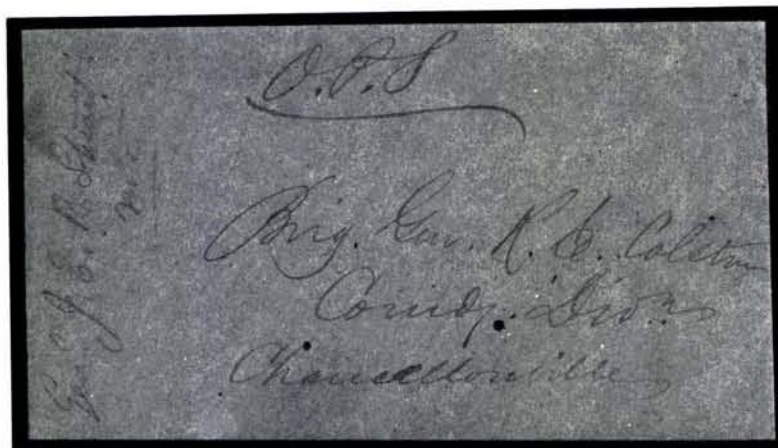 O.P.S
Brig. Gen. R. E. Colston
Comdg. Divn
Chancellorsville
J. E. B. Stuart.